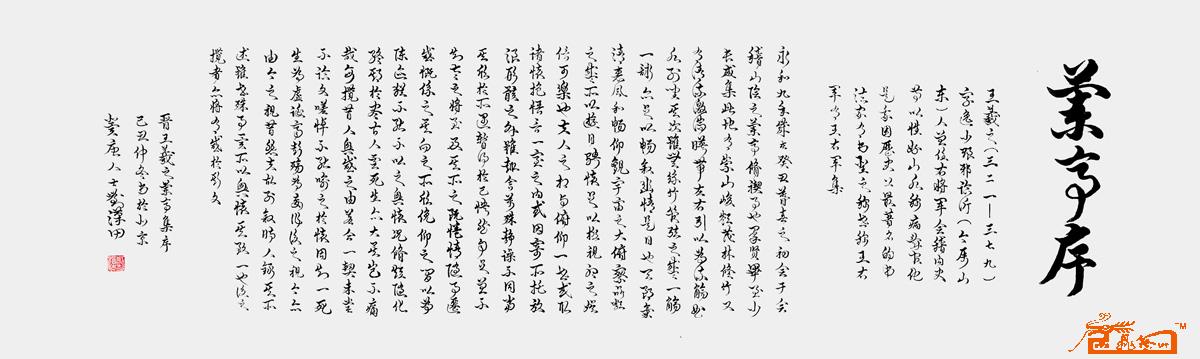 蘭亭序
王羲之(三二一—三七九)
字逸少瑯邪臨沂(今屬山
東)人曾任右將軍會稽內史
是我國歷史以最著名的書
法家有書聖之稱世稱王右
軍有王右軍集
永和九年歲在癸丑暮春之初會于會
稽山陰之蘭亭脩禊事也群賢畢至少
長咸集此地有崇山峻領茂林脩竹又
有清流激湍暎帶左右引以為流觴曲
水列坐其次雖無絲竹管弦之盛一觴
一詠亦足以暢敘幽情是日也天朗氣
清惠風和暢仰觀宇宙之大俯察品類
之盛所以遊目騁懷足以極視聽之娛
信可樂也夫人之相與俯仰一世或取
諸懷抱悟言一室之內或因寄所託放
浪形骸之外雖趣舍萬殊靜躁不同當
其欣於所遇暫得於己怏然自足曾不
知老之將至及其所之既惓情隨事遷
感慨係之矣向之所欣俛仰之間以為
陳迹猶不能不以之興懷況脩短隨化
終期於盡古人云死生亦大矣豈不痛
哉每攬昔人興感之由若合一契未嘗
不臨文嗟悼不能喻之於懷固知一死
生為虛誕齊彭殤為妄作後之視今亦
由今之視昔悲夫故列敘時人錄其所
述雖世殊事異所以興懷其致一也後之
攬者亦將有感於斯文
晉王羲之蘭亭集序
己丑仲冬書於北京